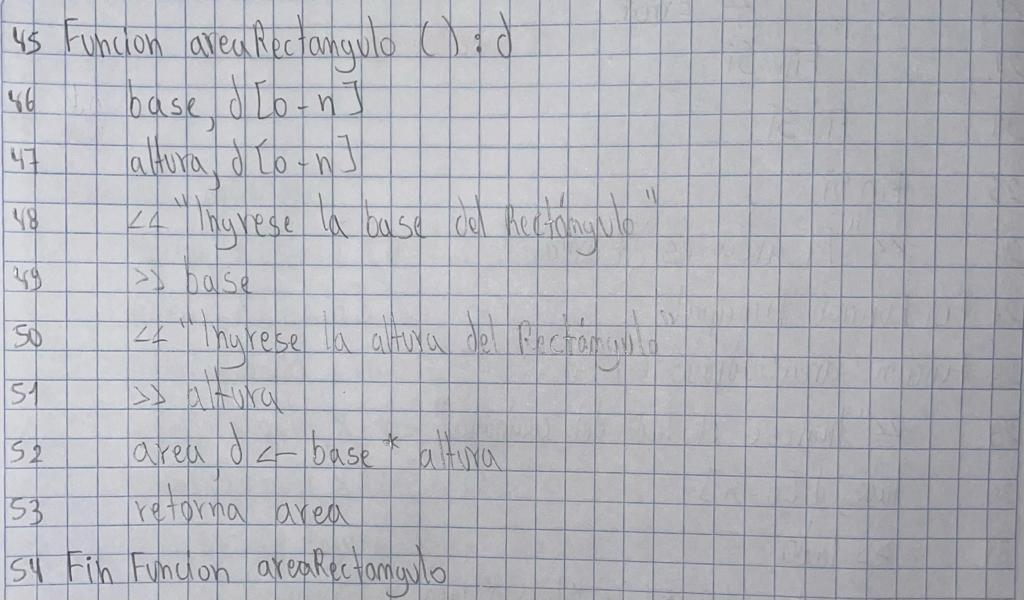 45 Funcion areaRectangulo () : d
46 base, d [0-n]
47 altura, d [0-n]
48 << "Ingrese la base del Rectángulo"
49 >> base
50 << "Ingrese la altura del Rectángulo"
51 >> altura
52 area, d <- base * altura
53 retorna area
54 Fin Funcion areaRectangulo